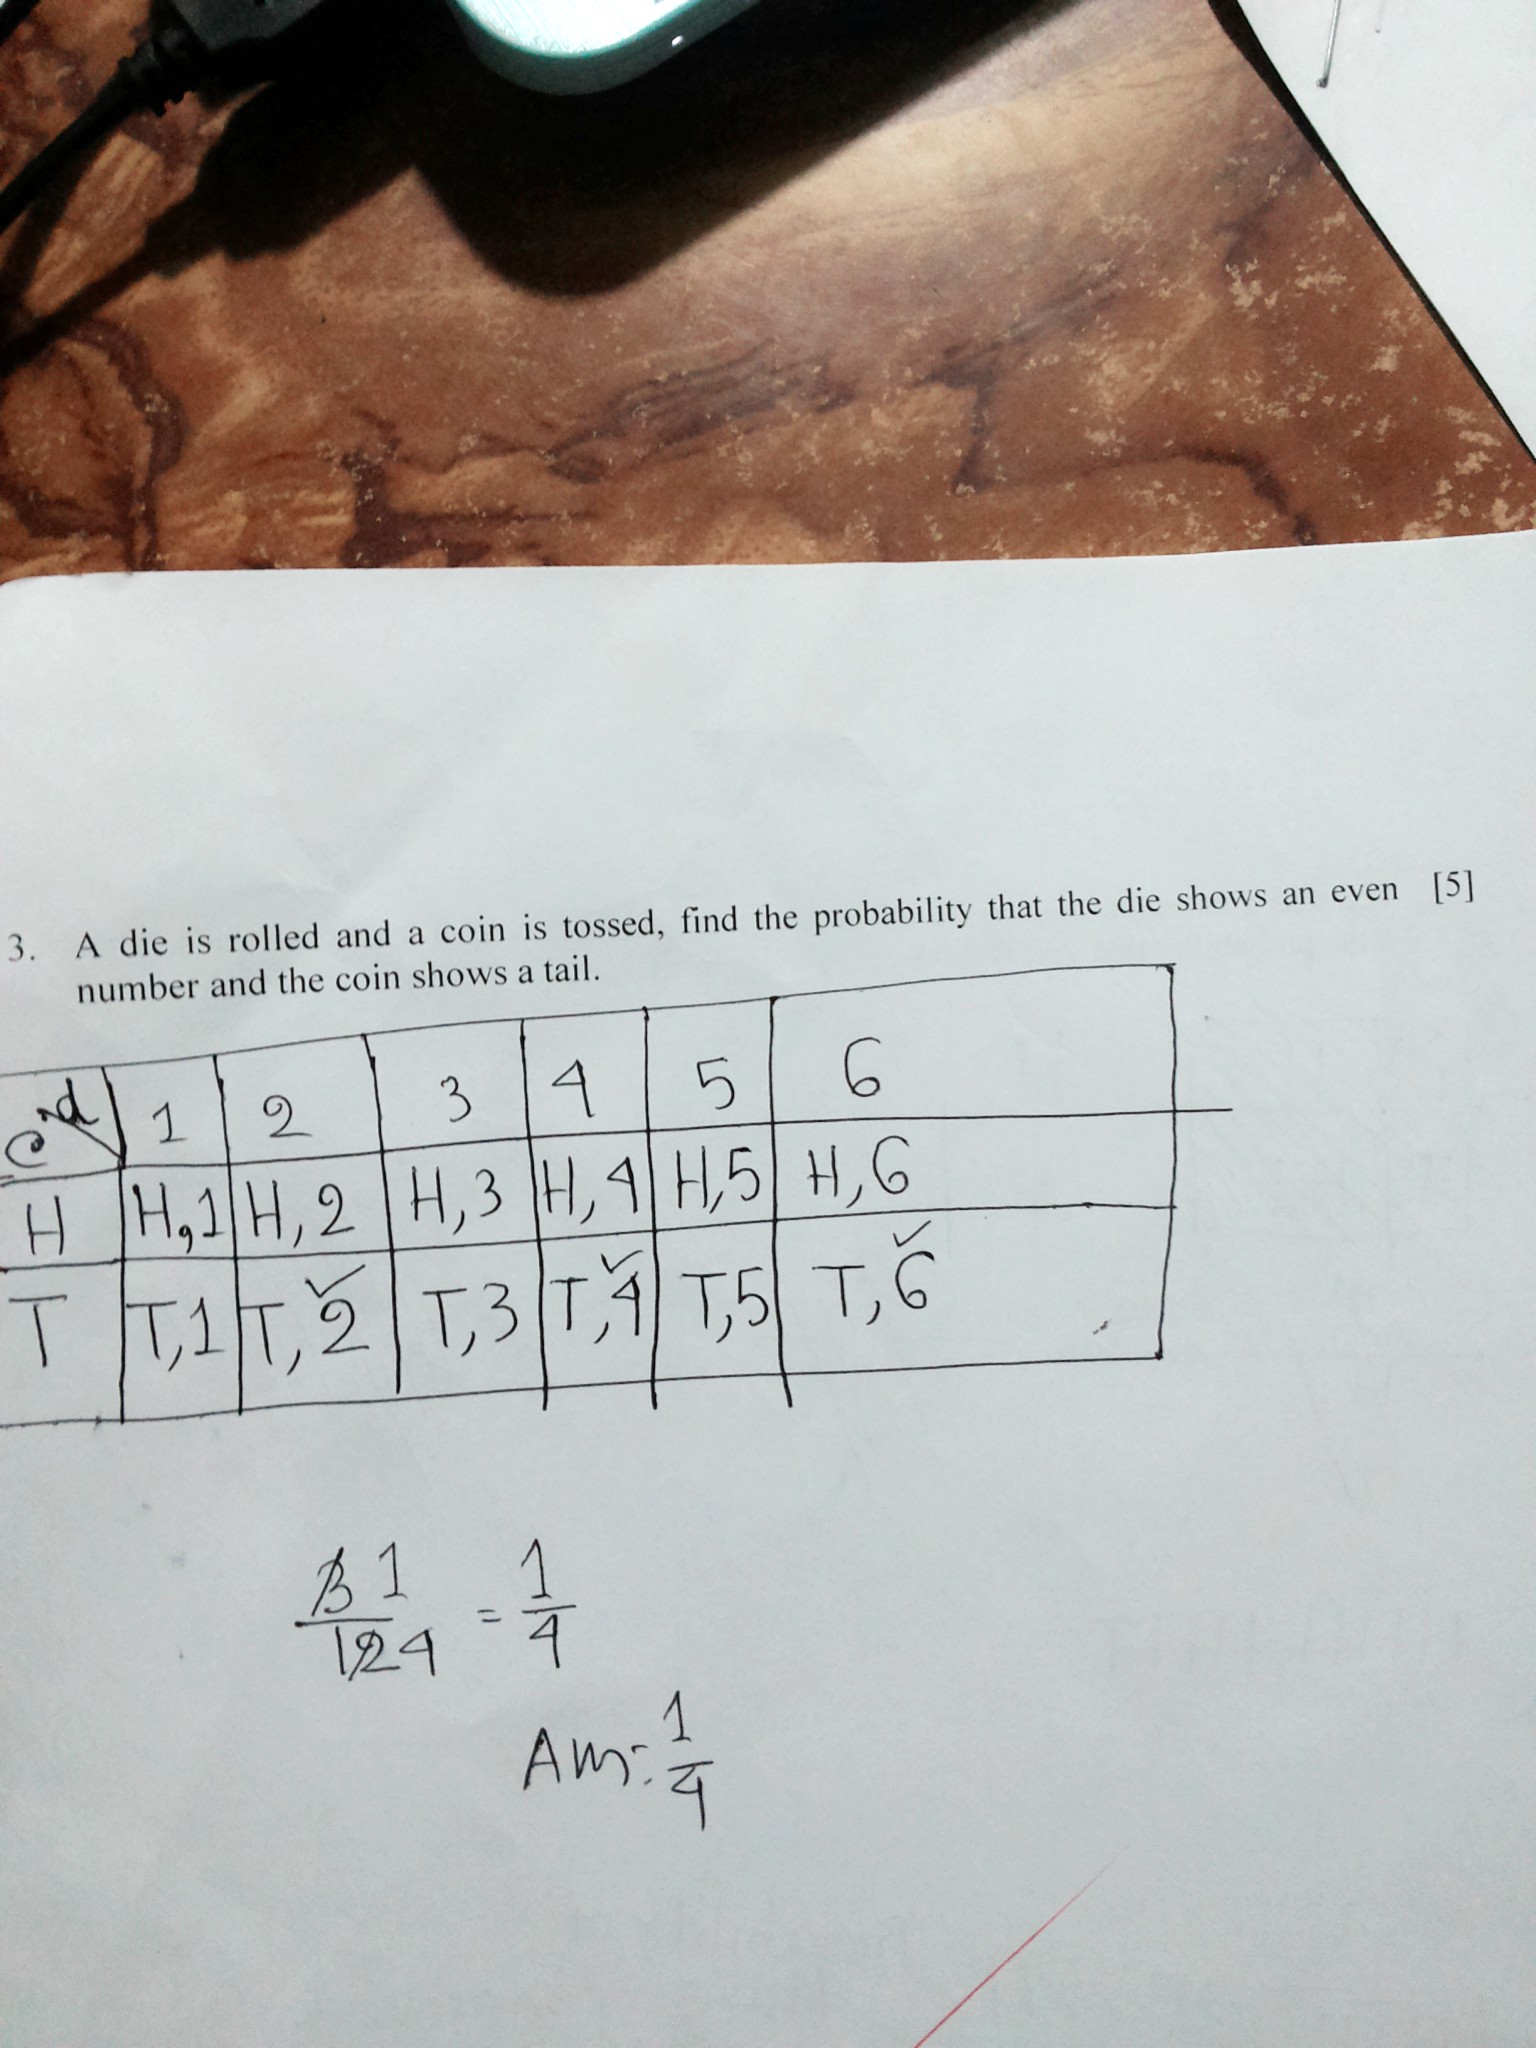 3. A die is rolled and a coin is tossed, find the probability that the die shows an even [5]
number and the coin shows a tail.
c d 1 2 3 4 5 6
H H,1 H,2 H,3 H,4 H,5 H,6
T T,1 T,2 T,3 T,4 T,5 T,6
3 1 = 1
12 4 4
Ans: 1
4